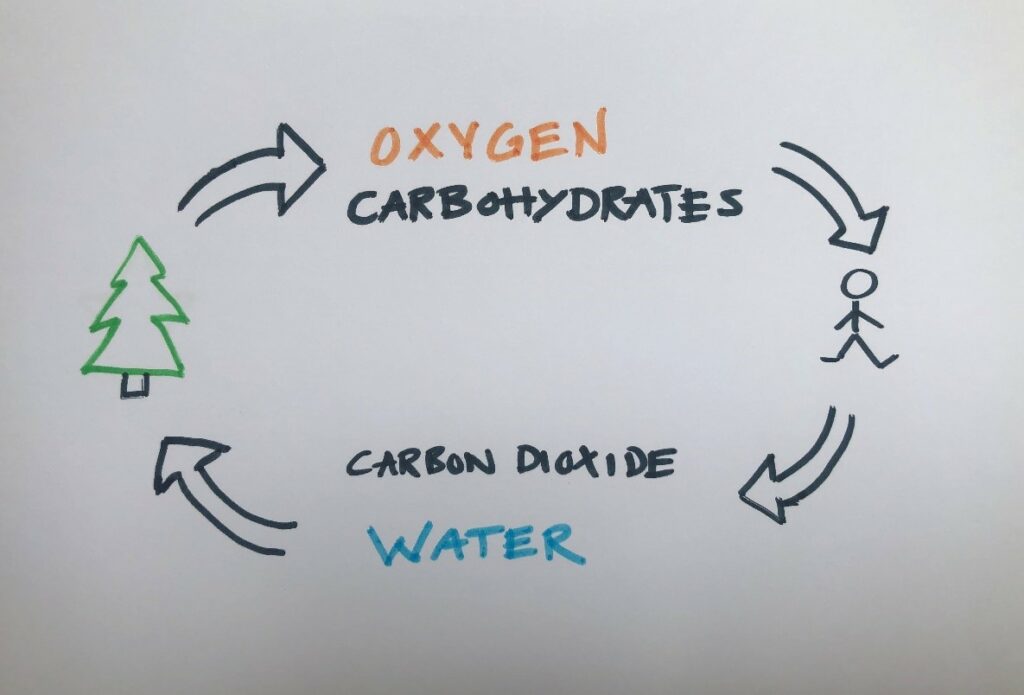 OXYGEN
CARBOHYDRATES
CARBON DIOXIDE
WATER